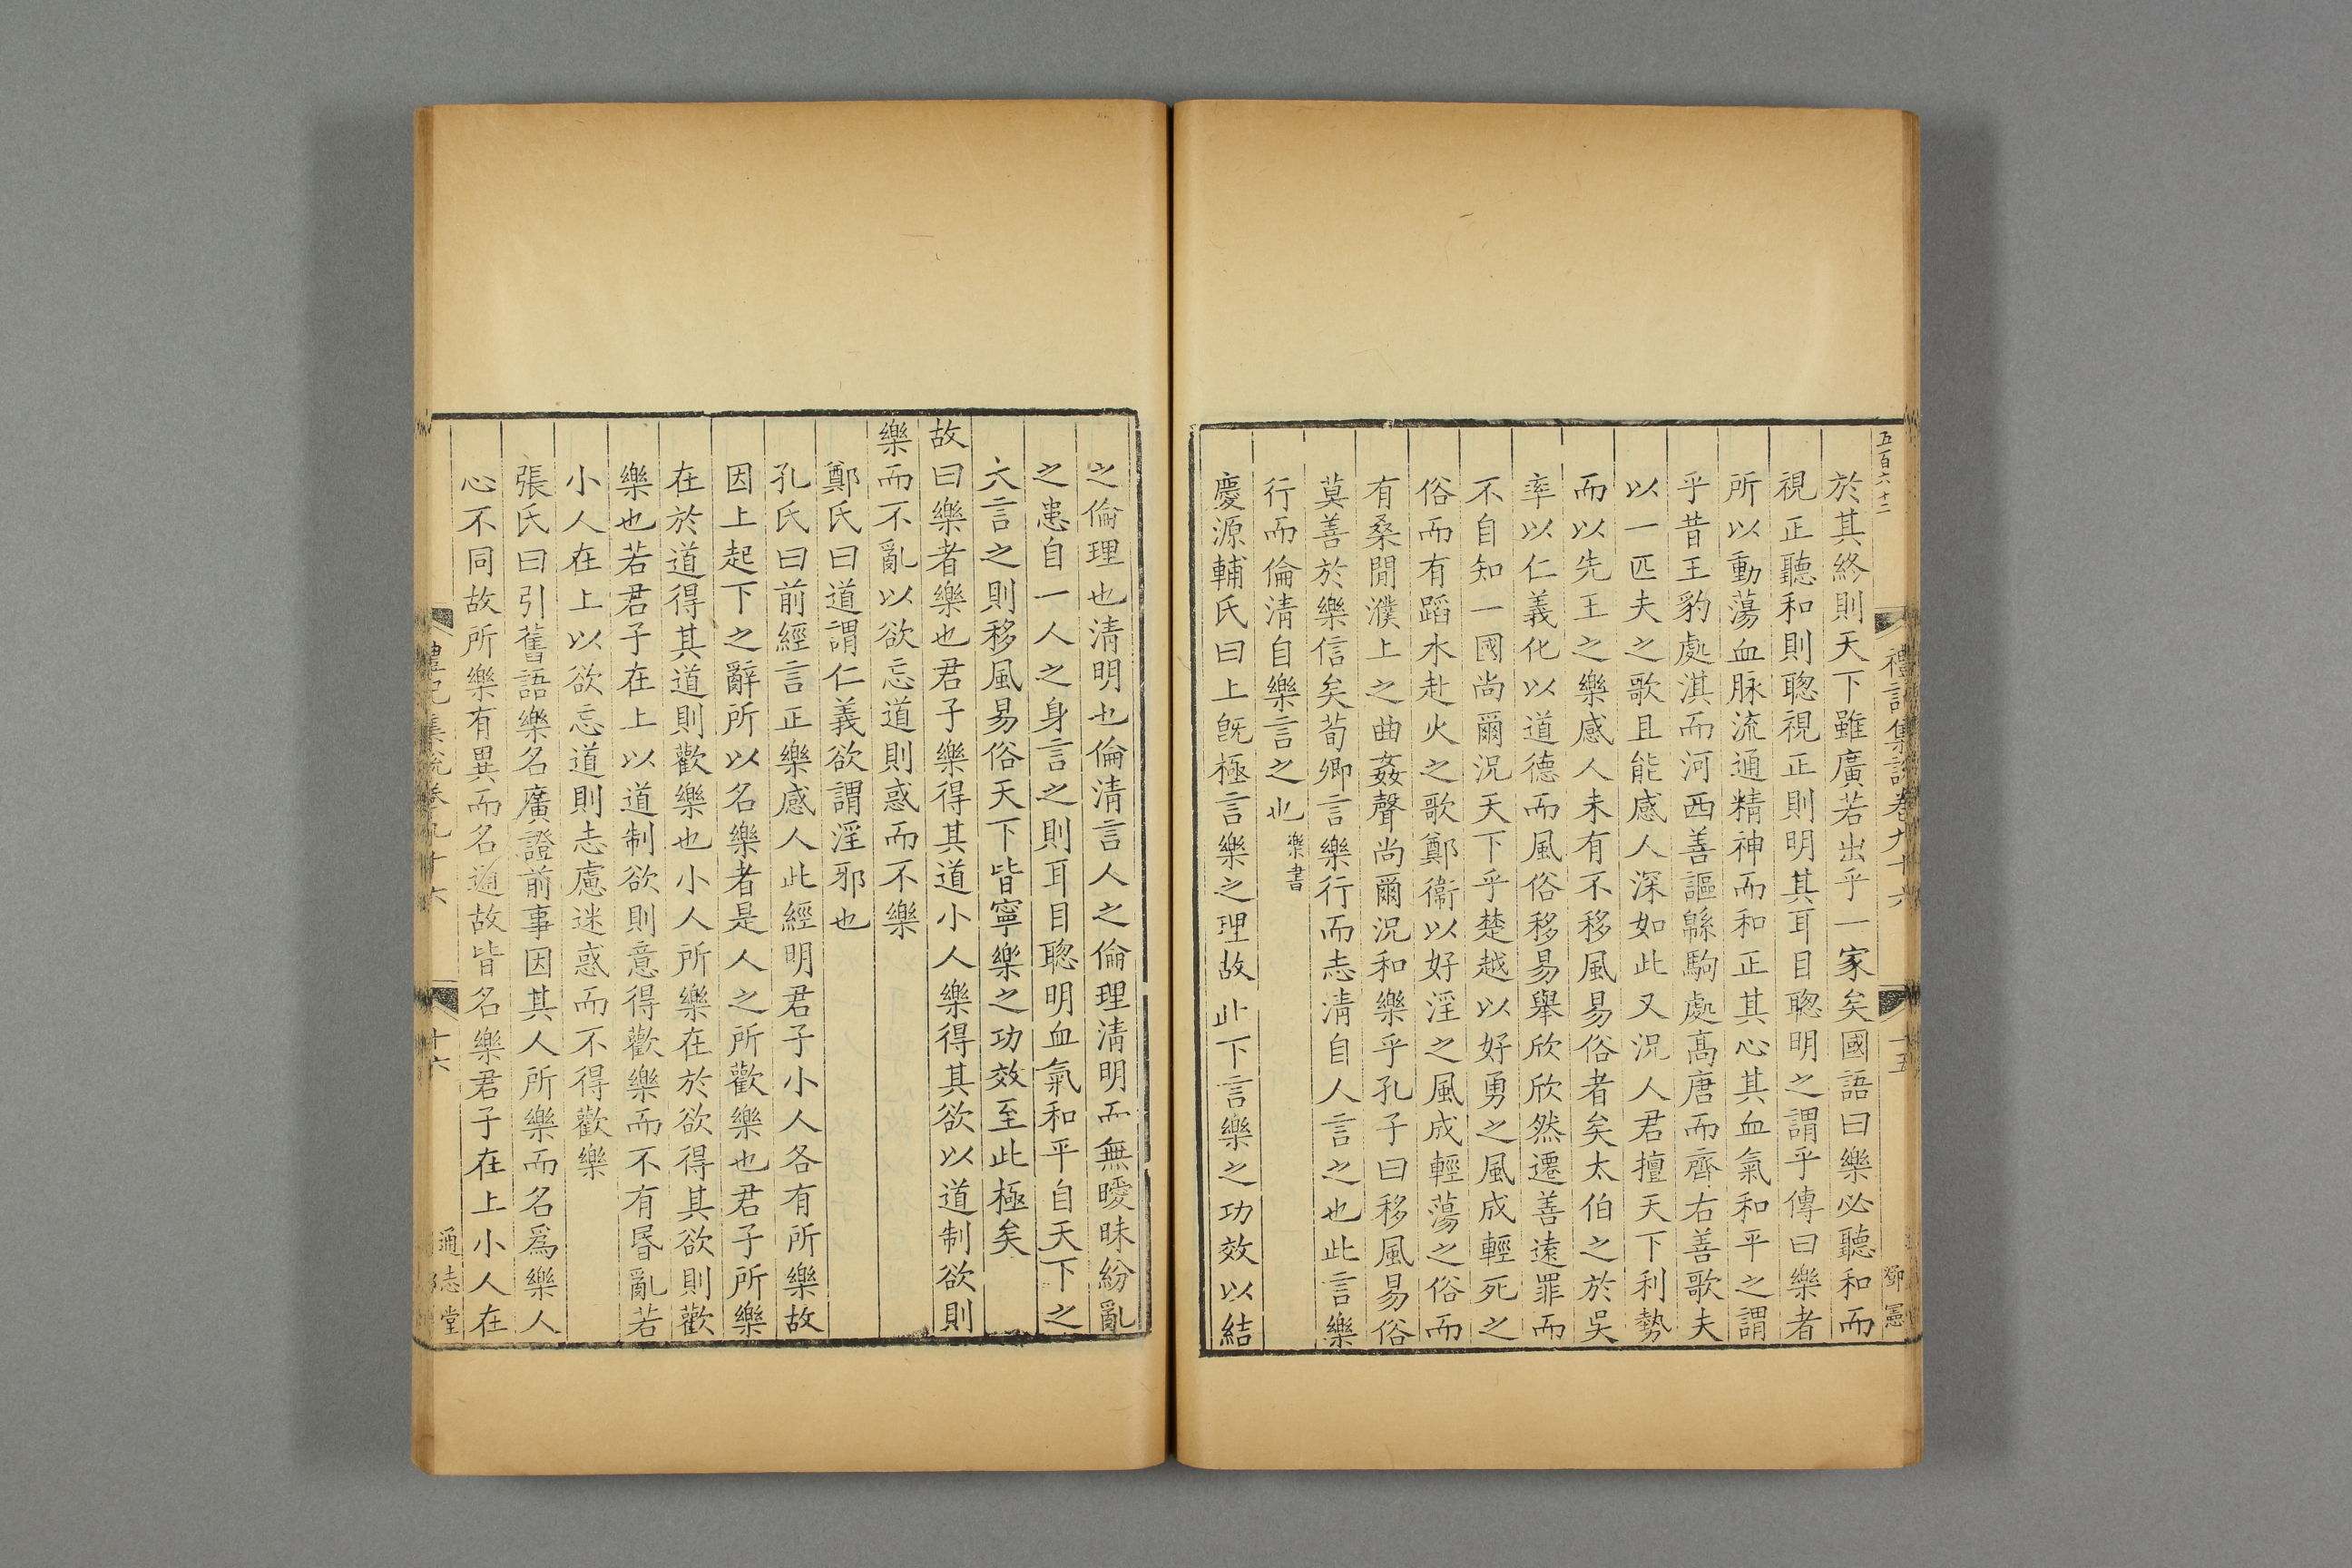 五百六十二
禮記集說卷九十六
十五
鄧憲
於其終則天下雖廣若出乎一家矣國語曰樂必聽和而
視正聽和則聦視正則明其耳目聦明之謂乎傳曰樂者
所以動蕩血脉流通精神而和正其心其血氣和平之謂
乎昔王豹處淇而河西善謳緜駒處髙唐而齊右善歌夫
以一匹夫之歌且能感人深如此又況人君擅天下利勢
而以先王之樂感人未有不移風易俗者矣太伯之於吳
率以仁義化以道德而風俗移易舉欣欣然遷善遠罪而
不自知一國尚爾況天下乎楚越以好勇之風成輕死之
俗而有蹈水赴火之歌鄭衞以好淫之風成輕蕩之俗而
有桑閒濮上之曲姦聲尚爾況和樂乎孔子曰移風易俗
莫善於樂信矣荀卿言樂行而志淸自人言之也此言樂
行而倫淸自樂言之也樂書
慶源輔氏曰上旣極言樂之理故此下言樂之功效以結
之倫理也淸明也倫淸言人之倫理淸明而無曖昧紛亂
之患自一人之身言之則耳目聦明血氣和平自天下之
大言之則移風易俗天下皆寧樂之功效至此極矣
故曰樂者樂也君子樂得其道小人樂得其欲以道制欲則
樂而不亂以欲忘道則惑而不樂
鄭氏曰道謂仁義欲謂淫邪也
孔氏曰前經言正樂感人此經明君子小人各有所樂故
因上起下之辭所以名樂者是人之所歡樂也君子所樂
在於道得其道則歡樂也小人所樂在於欲得其欲則歡
樂也若君子在上以道制欲則意得歡樂而不有昬亂若
小人在上以欲忘道則志慮迷惑而不得歡樂
張氏曰引舊語樂名廣證前事因其人所樂而名爲樂人
心不同故所樂有異而名通故皆名樂君子在上小人在
禮記集說卷九十六
十六
通志堂